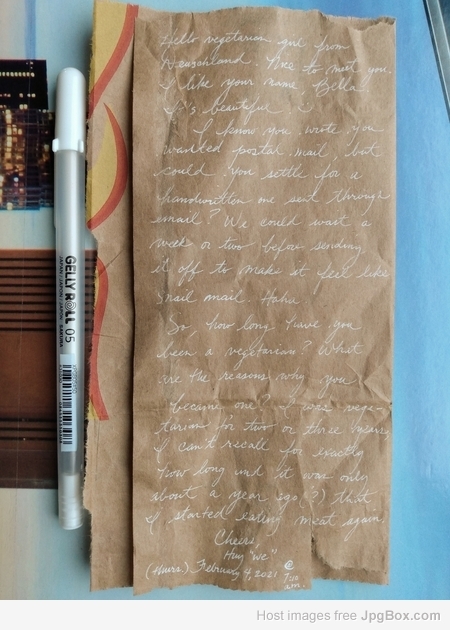 Hello vegetarian girl from
Deuschland. Nice to meet you.
I like your name, Bella!
It's beautiful. :)
I know you wrote you
wanted postal mail, but
could you settle for a
handwritten one sent through
email? We could wait a
week or two before sending
it off to make it feel like
snail mail. Haha.
So, how long have you
been a vegetarian? What
are the reasons why you
became one? I was vege-
tarian for two or three years,
I can't recall for exactly
how long and it was only
about a year ago(?) that
I started eating meat again.
Cheers,
"we"
(thurs.) February 4, 2021 @
GELLY ROLL 05
JAPAN SAKURA
Host images free JpgBox.com